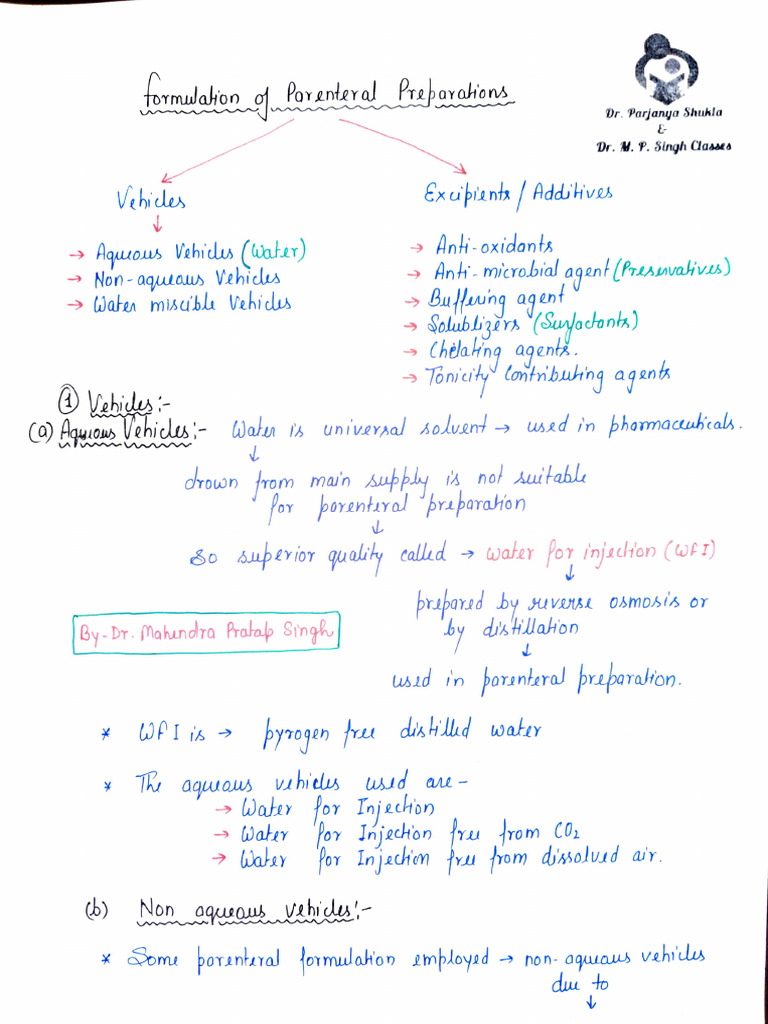 Formulation of Parenteral Preparations
Dr. Parjanya Shukla
&
Dr. M. P. Singh Classes
Vehicles
Excipients / Additives
→ Aqueous Vehicles (Water)
→ Non-aqueous Vehicles
→ Water miscible Vehicles
→ Anti-oxidants
→ Anti-microbial agent (Preservatives)
→ Buffering agent
→ Solublizers (Surfactants)
→ Chelating agents.
→ Tonicity Contributing agents
① Vehicles:-
(a) Aqueous Vehicles:- Water is universal solvent → used in pharmaceuticals.
↓
drown from main supply is not suitable
for parenteral preparation
↓
So superior quality called → water for injection (WFI)
↓
prepared by reverse osmosis or
by distillation
↓
By-Dr. Mahendra Pratap Singh
used in parenteral preparation.
* WFI is → pyrogen free distilled water
* The aqueous vehicles used are -
→ Water for Injection
→ Water for Injection free from CO2
→ Water for Injection free from dissolved air.
(b) Non aqueous vehicles:-
* Some parenteral formulation employed → non-aqueous vehicles
due to
↓